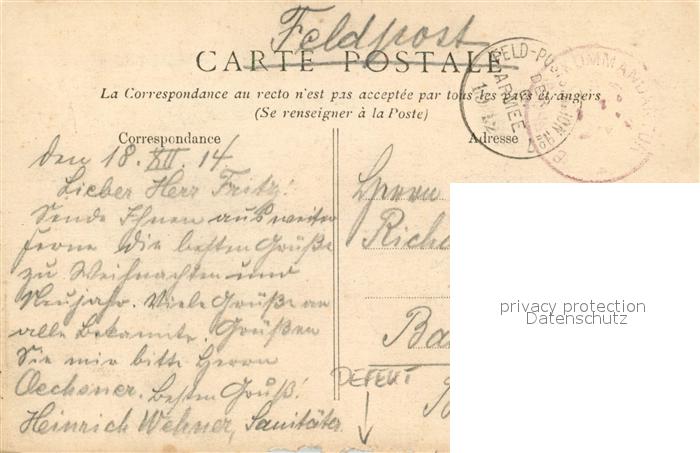 Feldpost
CARTE POSTALE
La Correspondance au recto n'est pas acceptée par tous les pays étrangers
(Se renseigner à la Poste)
Correspondance
Adresse
den 18. XII. 14
Lieber Herr Fritz!
Sende Ihnen aus weiter
Ferne die besten Grüße
zu Weihnachten und
Neujahr. Viele Grüße an
alle Bekannte. Grüßen
Sie mir bitte Herrn
Oechsner. Besten Gruß!
Heinrich Wehner, Sanitäter
Herrn
Richa
Ba
DEFEKT
FELD-POST
DER
ARMEE
KOMMANDANTUR
privacy protection
Datenschutz